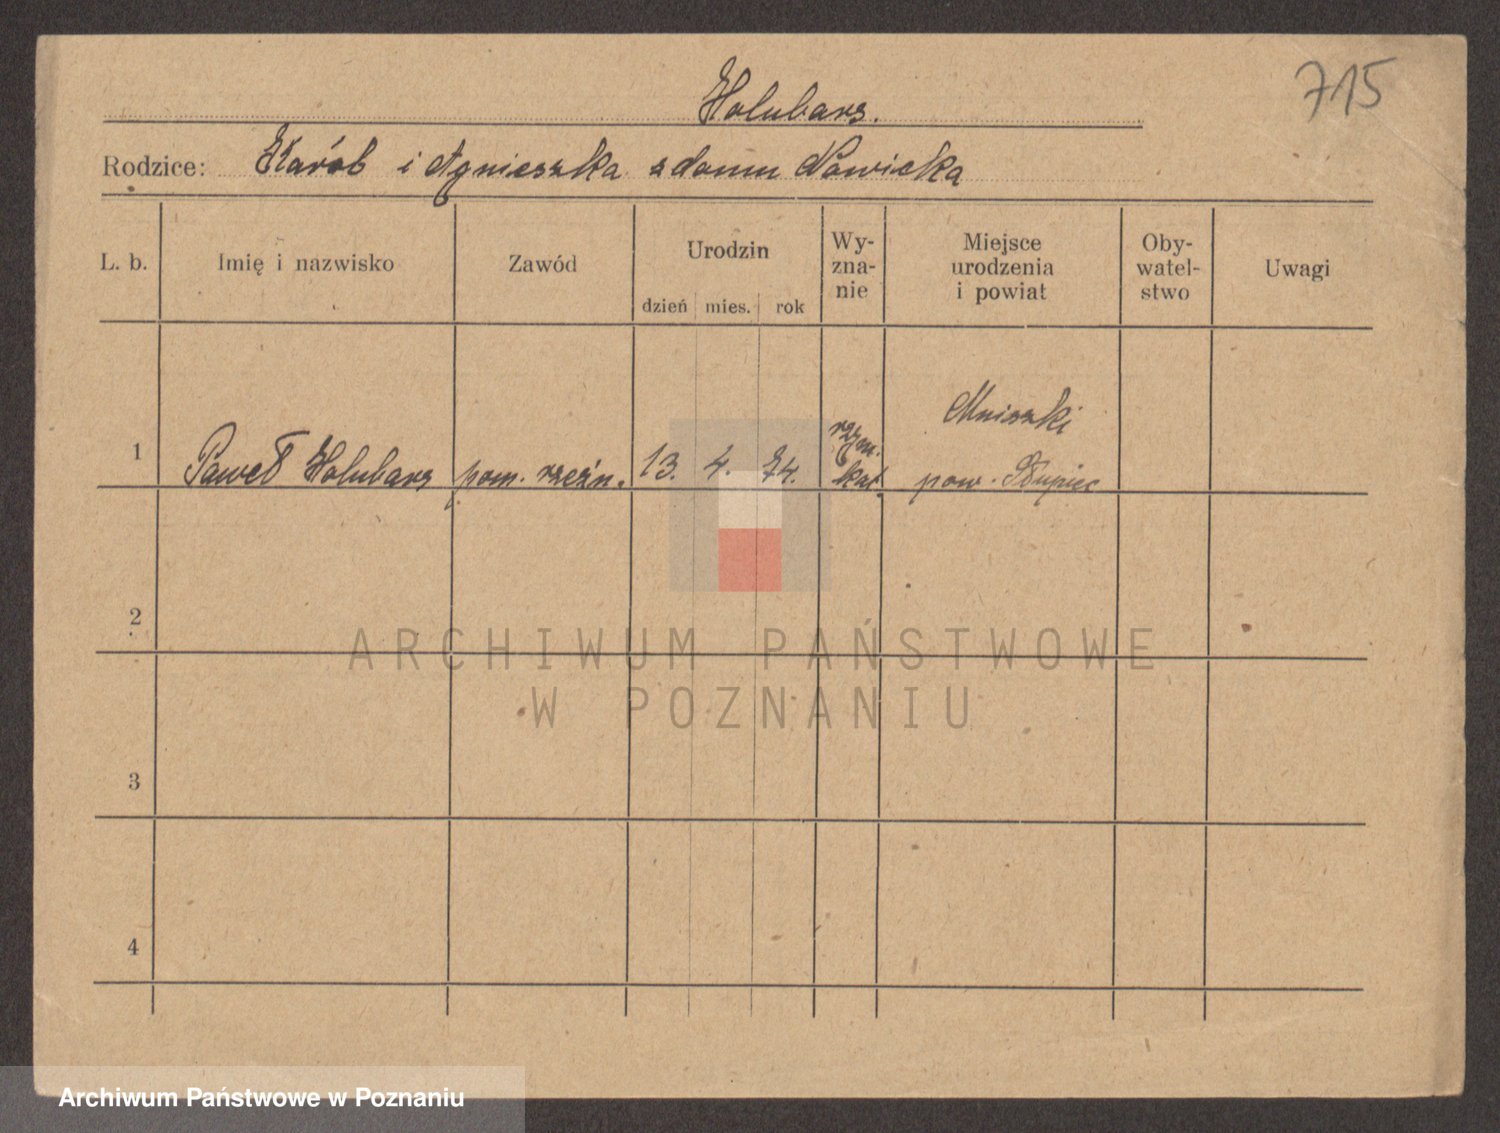 715
Holubarz.
Rodzice: Karól i Agnieszka z domu Nowicka
L. b. Imię i nazwisko Zawód Urodzin dzień mies. rok Wy-zna-nie Miejsce urodzenia i powiat Oby-watel-stwo Uwagi
Mniszki
1 Paweł Holubarz pom. rzeźn. 13. 4. 74. rzym. kat. pow. Słupiec
2
3
4
ARCHIWUM PAŃSTWOWE
W POZNANIU
Archiwum Państwowe w Poznaniu